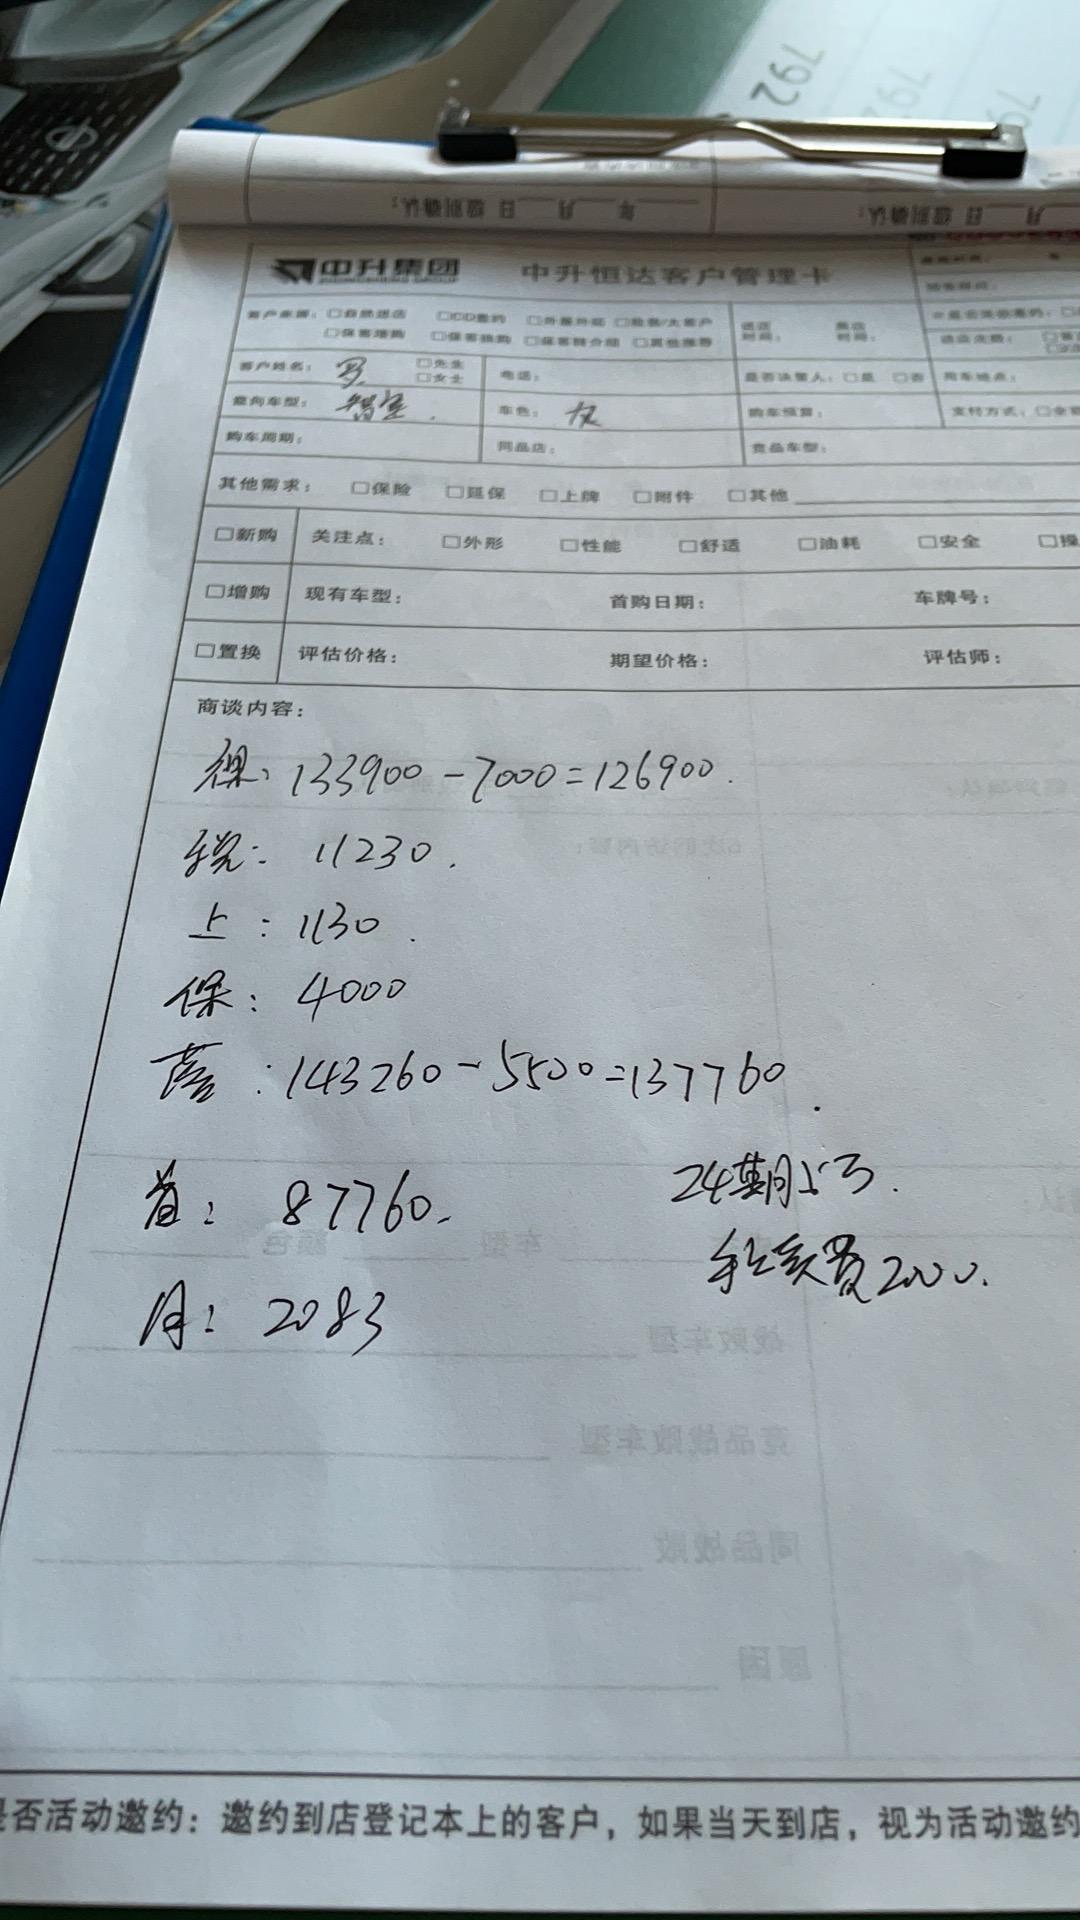 792
792
中升集团 中升恒达客户管理卡
客户来源：□自然进店 □CD邀约 □外展外拓 □批售/大客户
□保客增购 □保客换购 □保客转介绍 □其他推荐
进店时间： 离店时间：
客户姓名：罗 □先生 □女士 电话： 是否决策人：□是 □否 用车地点：
意向车型： 车色：灰 购车预算： 支付方式：□全
购车周期： 同品店： 竞品车型：
其他需求：□保险 □延保 □上牌 □附件 □其他
□新购 关注点：□外形 □性能 □舒适 □油耗 □安全 □操
□增购 现有车型： 首购日期： 车牌号：
□置换 评估价格： 期望价格： 评估师：
商谈内容：
裸：133900-7000=126900.
税：11230.
上：1130.
保：4000
落：143260-5500=137760.
首：87760.
24期5万.
手续费2000.
月：2083
是否活动邀约：邀约到店登记本上的客户，如果当天到店，视为活动邀约